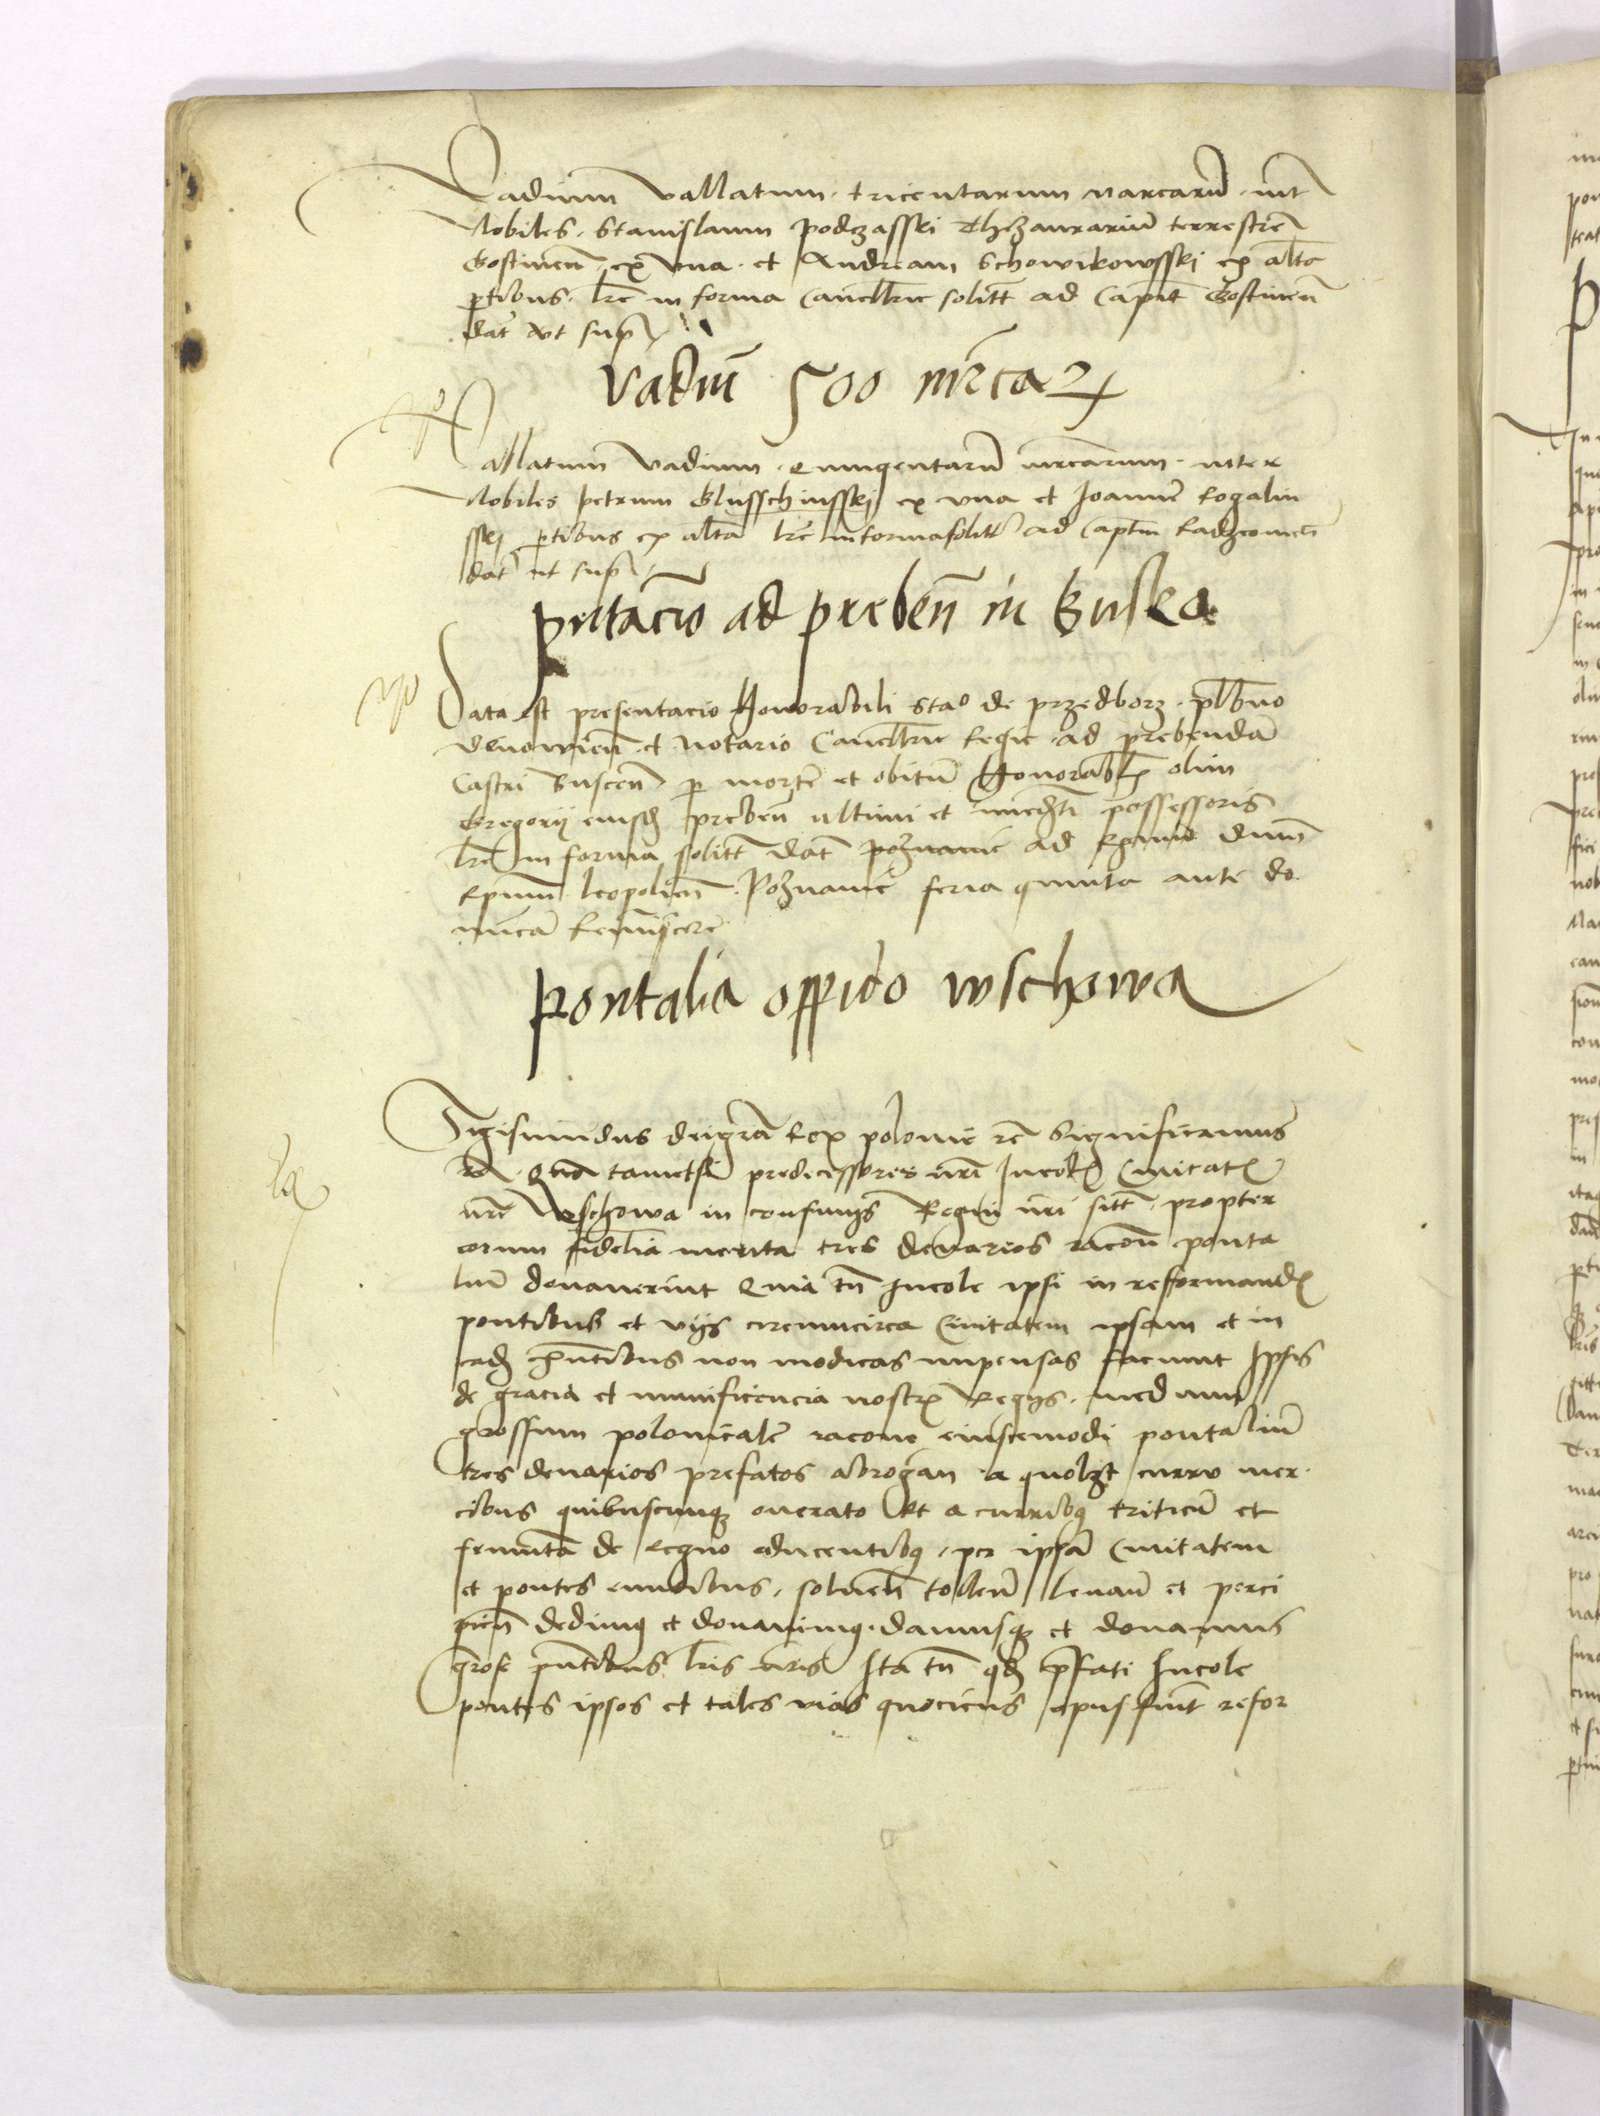 Vadium vallatum tricentarum marcarū int
Nobiles Stanislaum podczasski Thezaurariū terrestrē
Gostinen̄ ex vna et Andream Schowikowsski ex alta
ptibus lrē in forma Cancllrie solitt ad Capit Gostinen̄
dat vt sup
Vadiū 500 mrcar
allatum vadium quingentarū mrcarum inter
Nobiles petrum Glusschinsskj ex vna et Joannē Rogalin
sskj ptibus ex alta lrē in forma solitt ad Captm Radzeowien̄
dat ut sup
pntacio ad preben̄ in Buska
Data est presentacio Honorabili Stao de przedborz plbno
et Notario Cancllrie Regie ad prebendā
Castri Buscen̄ p mortē et obitū Honorabl olim
Gregorij eiusd preben̄ ultimi et immedti possessoris
lrē in forma solitt dat poznanie ad Rgmū dnum
Epum leopolien̄ Poznanie feria quinta ante do
nicā Reminiscere
pontalia oppido wschowa
Sigismundus dei gra Rex polonie rc Significamus
rc Qua tametsi predecessores nri Incol Ciuitat
nre Wschowa in confinijs Regni nri sitt propter
eorum fidelia merita tres denarios racon̄ ponta
liū donauerint Quia tn̄ Incole ipsi in reformand
pontibus et vijs circumcirca Ciuitatem ipsam et in
ead pntibus non modicas impensas faciunt Ipsis
de gracia et munificencia nostr Regijs medium
grossum polonicalē racone eiuscemodi pontaliū
tres denarios prefatos abrogan a quolzt curru mer
cibus quibuscunq onerato Et a curribq triticū et
frumta de regno educentibq per ipsā Ciuitatem
et pontes euntibus soluen̄ tollen̄ leuan̄ et perci
pien̄ dedimq et donauimq damusq et donamus
pntibus lris nris Ita tn̄ qd pfati Incole
pontes ipsos et tales vias quociens opus fuit refor